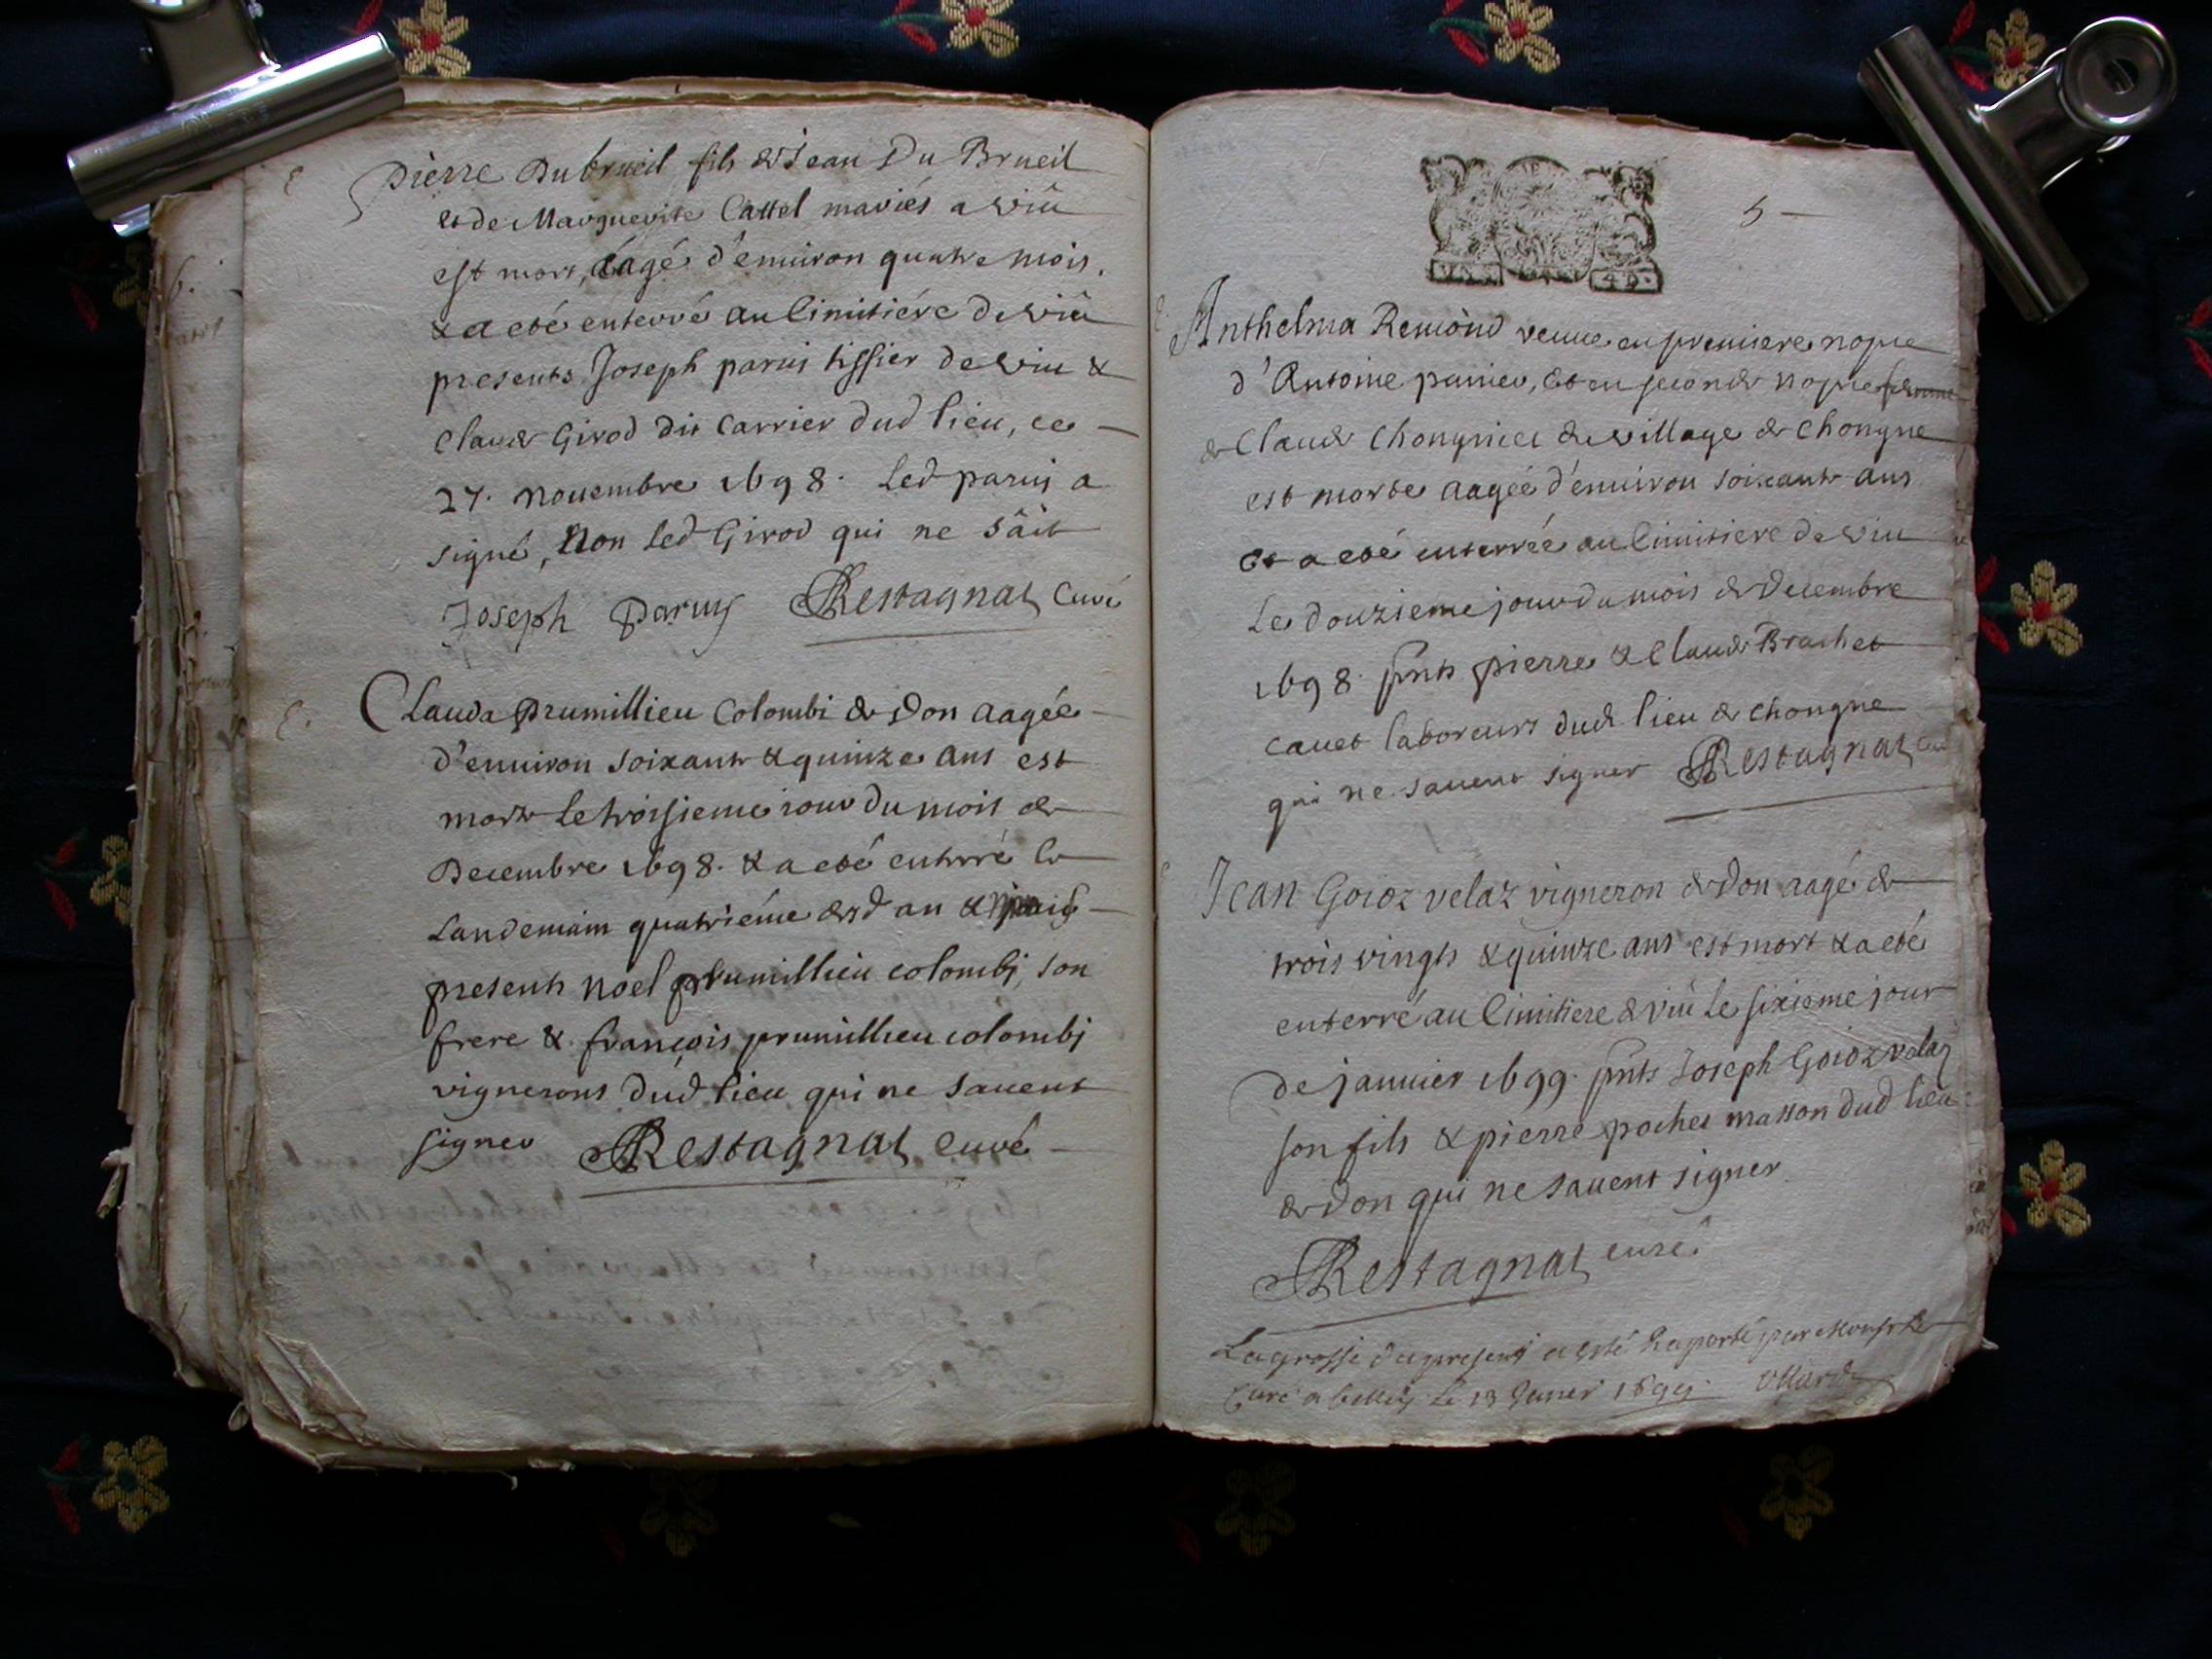 Pierre Dubrueil fils de Jean Du Brueil
et de Marguerite Cattel mariés a Viû
est mort, aagé d'enuiron quatre mois,
& a eté enterré au Cimitiére de Viû
presents Joseph parui tissier de Viu &
Claude Girod dit Carrier dud lieu, ce
27. nouembre 1698. Led parui a
signé, non Led Girod qui ne sâit
Joseph Paruy Restagnat Curé
Clauda Prumillieu Colombi de Don aagée
d'enuiron soixante & quinze ans est
morte le troisieme iour du mois de
Decembre 1698. & a eté enterré le
Landemain quatriéme desd an &
presents noel prumillieu colombi, son
frere & françois prumillieu colombi
vignerons dud lieu qui ne sauent
signer Restagnat curé
5
Anthelma Remond veuue en premiere nopce
d'Antoine panier, et en seconde nopce
de Claude Chongnier du village de Chongne
est morte aagée d'enuiron soixante ans
et a eté enterrée au Cimitiere de Viu
Le douzieme jour du mois de Decembre
1698. pnts pierre & Claude Brachet
Cauet laboreurs dud lieu de chongne
qui ne sauent signer Restagnat
Jean Goioz velaz vigneron de Don aagé de
trois vingts & quinze ans est mort & a eté
enterré au Cimitiere de Viû Le sixieme jour
de januier 1699. pnts Joseph Goioz velaz
son fils & pierre pochet masson dud lieu
de Don qui ne sauent signer
Restagnat curé
La grosse du present a esté Raporté par
Curé a belley Le 13 1699